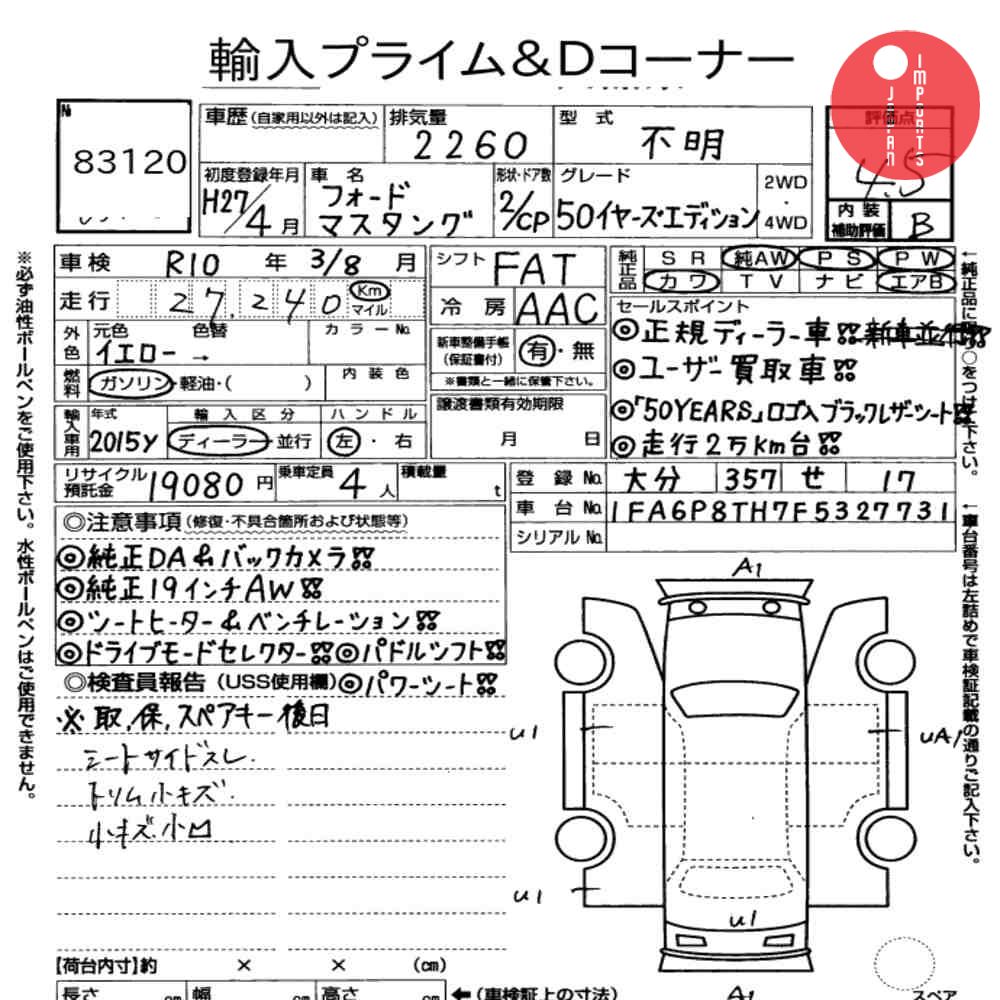 輸入プライム&Dコーナー
JAPAN IMPORTS
№ 83120
車歴(自家用以外は記入)
排気量 2260
型式 不明
評価点 4.5
初度登録年月 H27/4月
車名 フォード マスタング
形状・ドア数 2/CP
グレード 50イヤーズエディション
2WD・4WD
内装補助評価 B
車検 R10年3/8月
シフト FAT
純正品 SR 純AW PS PW
カワ TV ナビ エアB
走行 27,240 Km マイル
冷房 AAC
セールスポイント
◎正規ディーラー車
◎ユーザー買取車
◎「50YEARS」ロゴ入ブラックレザーシート
◎走行2万Km台
外色 元色 色替 カラーNo.
イエロー →
新車整備手帳(保証書付) 有・無
※書類と一緒に保管下さい。
燃料 ガソリン・軽油・( ) 内装色
譲渡書類有効期限 月 日
輸入車用 年式 2015y
輸入区分 ディーラー・並行
ハンドル 左・右
リサイクル預託金 19080円
乗車定員 4人
積載量 t
登録No. 大分 357 せ 17
車台No. 1FA6P8TH7F5327731
シリアルNo.
◎注意事項(修復・不具合箇所および状態等)
◎純正DA&バックカメラ
◎純正19インチAW
◎シートヒーター&ベンチレーション
◎ドライブモードセレクター ◎パドルシフト
◎検査員報告(USS使用欄) ◎パワーシート
※取,保,スペアキー後日
シートサイドスレ
トリム小キズ.
小キズ.小凹
A1
U1
UA1
U1
U1
A1
【荷台内寸】約 × × (cm)
長さ cm 幅 cm 高さ cm ←(車検証上の寸法)
スペア
※必ず油性ボールペンをご使用下さい。水性ボールペンはご使用できません。
←純正品に○をつけて下さい。
←車台番号は左詰めで車検証記載の通りご記入下さい。